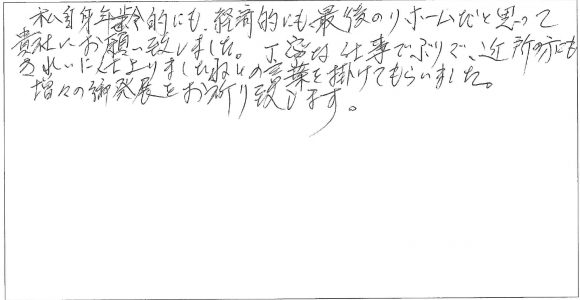 私自身年齢的にも、経済的にも最後のリホームだと思って
貴社にお願い致しました。丁寧な仕事でぶりで、近所の方にも
きれいに仕上りましたねとの言葉を掛けてもらいました。
増々の御発展をお祈り致します。